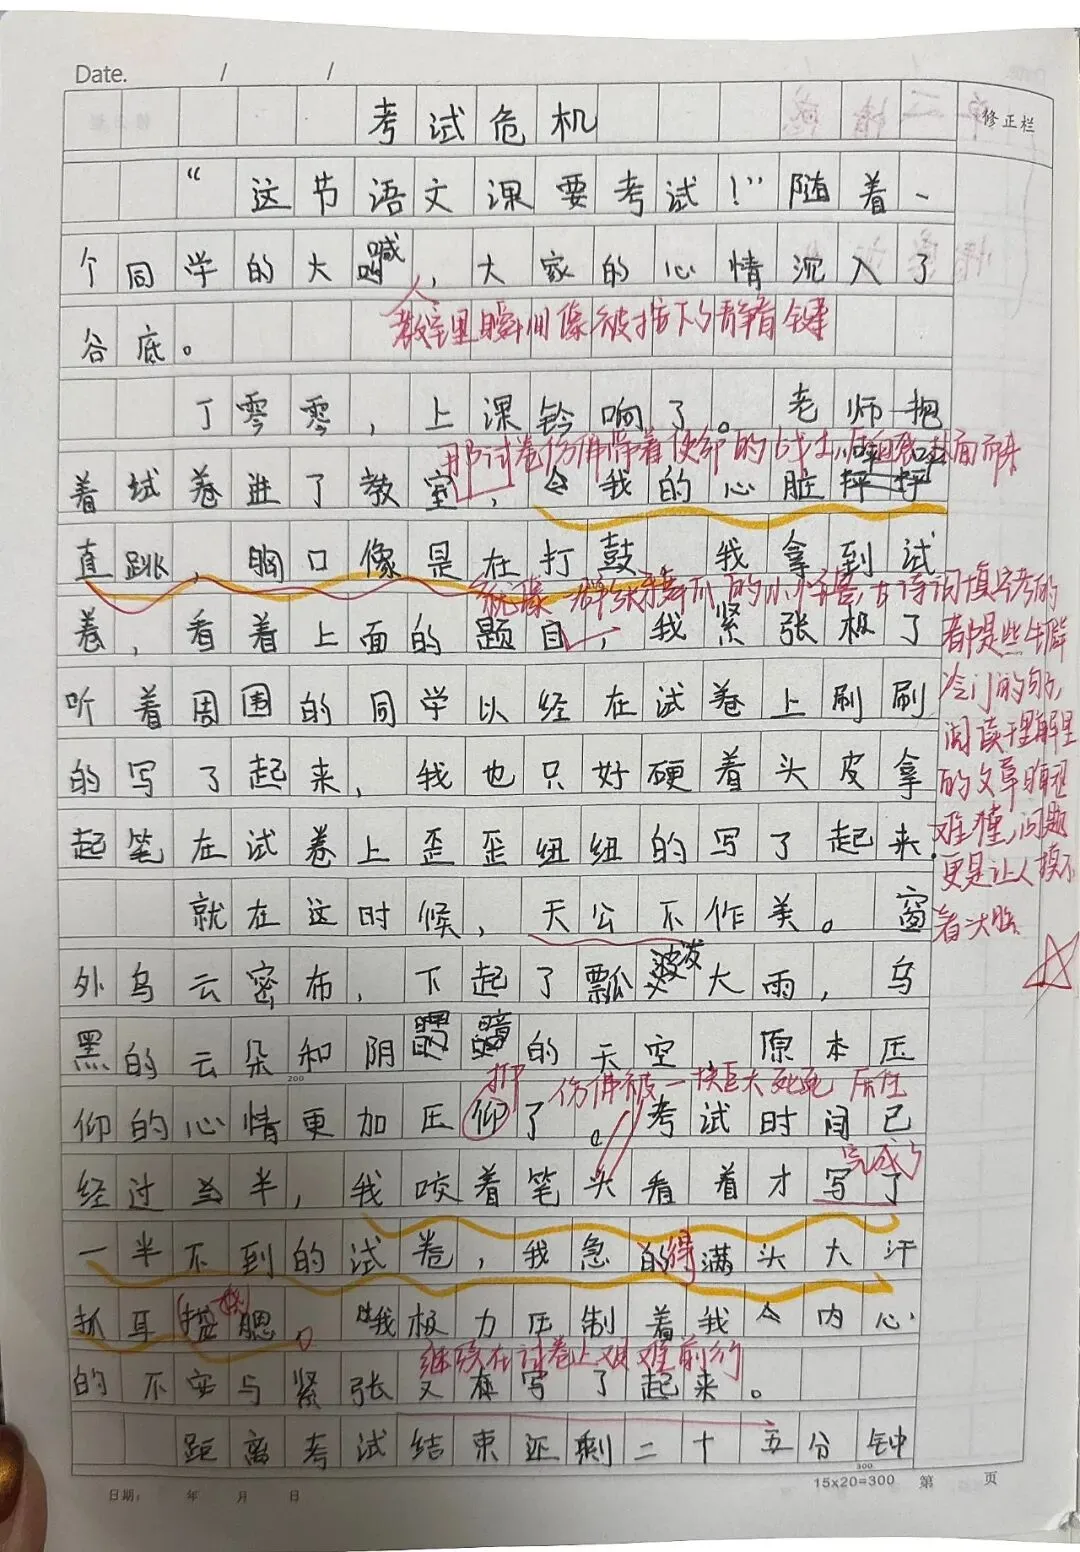 Date. / /
考试危机
修正栏
“这节语文课要考试！”随着一
个同学的大喊，大家的心情沉入了
教室里瞬间像被按下的静音键
谷底。
丁零零，上课铃响了。老师抱
那试卷仿佛带着使命的战士
着试卷进了教室，令我的心脏怦怦
直跳，胸口像是在打鼓 我拿到试
就像一群张牙舞爪的小怪兽，古诗词填空考的
卷，看着上面的题目，我紧张极了
都是些生僻
听着周围的同学以经在试卷上刷刷
冷门的句子，
阅读理解里
的写了起来，我也只好硬着头皮拿
的文章晦涩
起笔在试卷上歪歪纽纽的写了起来。
难懂，问题
更是让人摸不
就在这时候，天公不作美。窗
着头脑
外乌云密布，下起了瓢泼大雨，乌
黑的云朵和阴暗的天空，原本压
抑 仿佛被一块巨大死死压住
仰的心情更加压仰了。考试时间已
完成了
经过当半，我咬着笔头看着才写了
一半不到的试卷，我急的得满头大汗
抓耳挠腮。我极力压制着我令内心
继续在试卷上艰难前行
的不安与紧张又在写了起来。
距离考试结束还剩二十五分钟
日期： 年 月 日
15x20=300 第 页